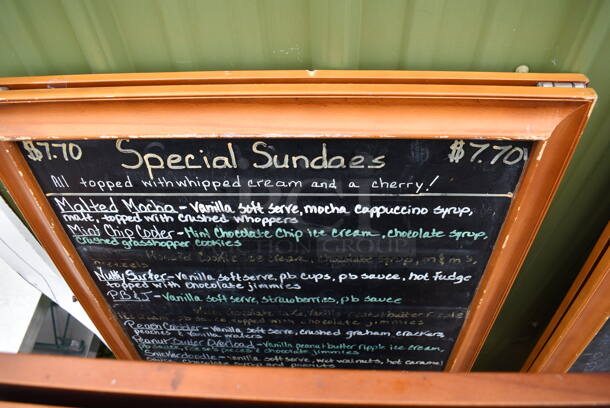 $7.70 Special Sundaes $7.70
All topped with whipped cream and a cherry!
Malted Mocha - Vanilla soft serve, mocha cappuccino syrup,
malt, topped with crushed whoppers
Mint Chip Coder - Mint Chocolate Chip ice cream, chocolate syrup,
crushed grasshopper cookies
Monster Cookie ice cream, chocolate syrup, m&m's,
Nutty Surfer - Vanilla soft serve, pb cups, pb sauce, hot fudge
topped with chocolate jimmies
PB&J - Vanilla soft serve, strawberries, pb sauce
topped with chocolate jimmies
Peach - Vanilla soft serve, crushed graham crackers,
peaches & vanilla wafers
Peanut Butter Overload - Vanilla peanut butter ripple ice cream,
pb sauce, reese's pieces & chocolate jimmies
Snickerdoodle - vanilla soft serve, wet walnuts, hot caramel
sauce, chocolate syrup and peanuts